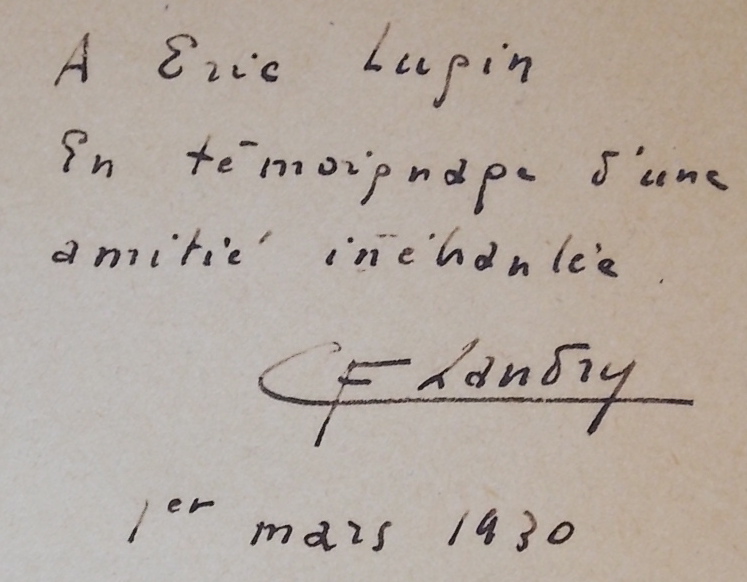 A Eric Lugin
En témoignage d'une
amitié inébranlée.
CF Landry
1er mars 1930